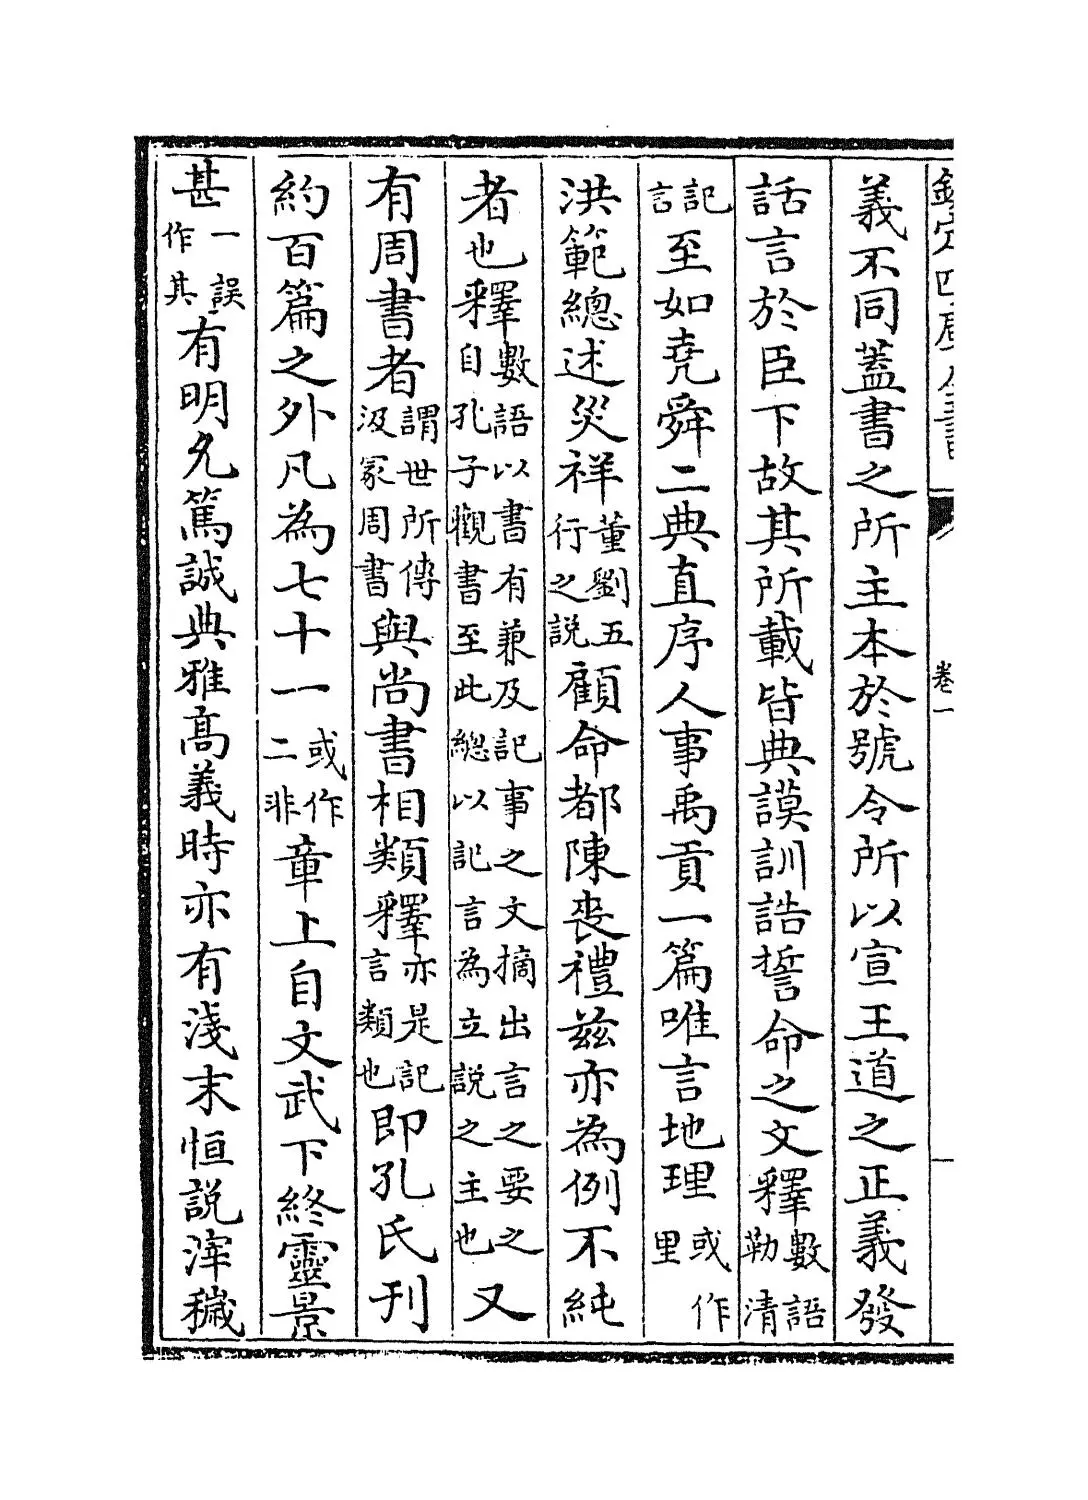 欽定四庫全書 卷一
義不同蓋書之所主本於號令所以宣王道之正義發
話言於臣下故其所載皆典謨訓誥誓命之文釋數語勒清
記言至如堯舜二典直序人事禹貢一篇唯言地理或作里
洪範總述災祥董劉五行之說顧命都陳喪禮兹亦為例不純
者也釋數語以書有兼及記事之文摘出言之要之自孔子觀書至此總以記言為立說之主也又
有周書者謂世所傳汲冢周書與尚書相類釋亦是記言類也即孔氏刊
約百篇之外凡為七十一或作二非章上自文武下終靈景
甚一誤作其有明允篤誠典雅高義時亦有淺末恒說滓穢